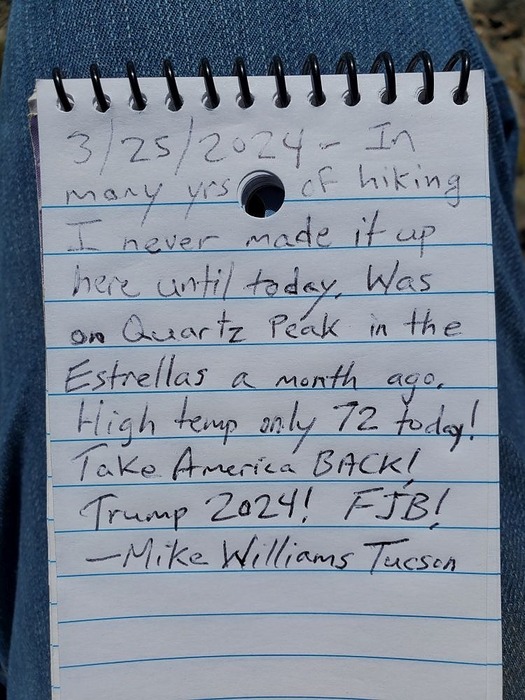 3/25/2024 - In
many yrs of hiking
I never made it up
here until today. Was
on Quartz Peak in the
Estrellas a month ago.
High temp only 72 today!
Take America BACK!
Trump 2024! FJB!
—Mike Williams Tucson